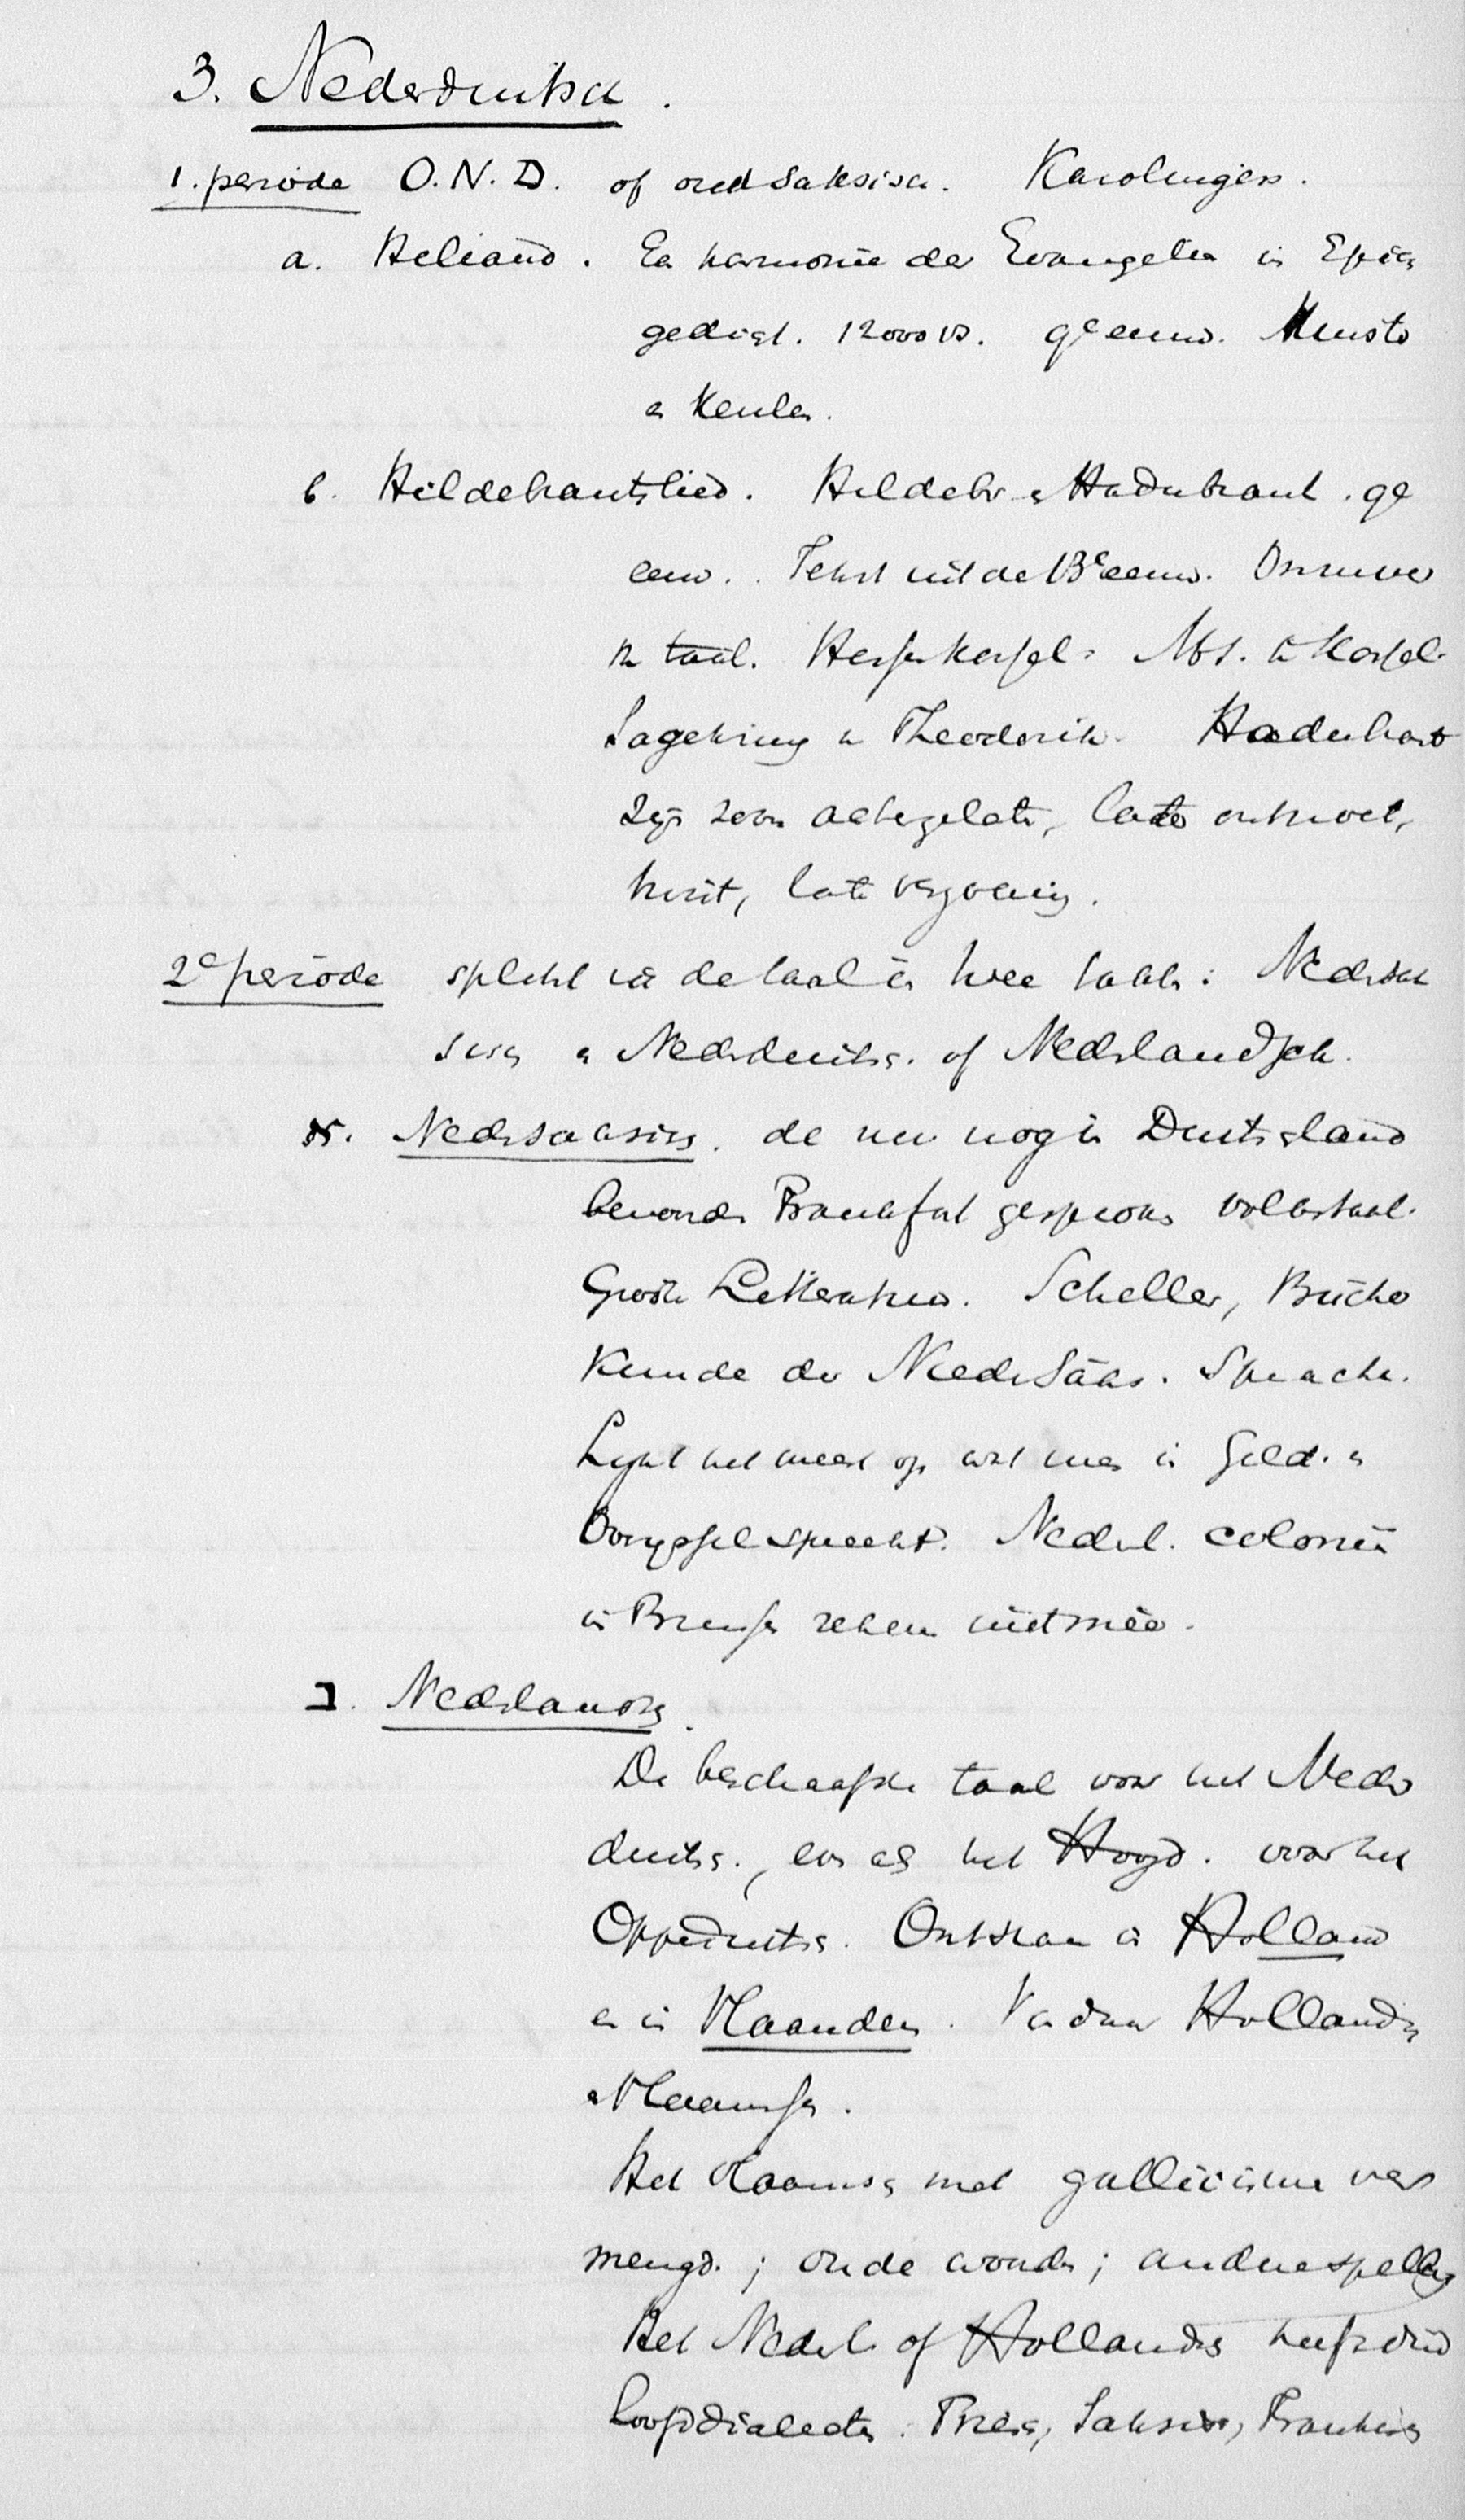 3. Nederduitsch.
1. periode O.N.D. of oudsaksisch. Karolingers.
a. Heliand. Een harmonie der Evangelien in Episch
gedicht. 12000 vs. 9e eeuw. Munster
en Keulen.
b. Hildebrantslied. Hildebr. en Hadubrant. 9e
eeuw. Tekst uit de 13e eeuw.
taal. Hs. te Kassel.
Sagekring v. Theodorik. Hadubrant
zijn zoon achtergelaten, later ontmoet,
twist, later verzoening.
2e periode splitst zich de taal in twee takken: Nedersak
sisch en Nederduitsch. of Nederlandsch.
א. Nedersaksisch. de nu nog in Duitschland
benoorden Frankfort gesproken volkstaal.
Groote Letteratuur. Scheller, Bücher
Kunde der Niedersäcs. Sprache.
Lijkt het meest op wat men in Geld. en
Overijssel spreekt. Nederl. coloniën
in Pruisen rekenen niet mee.
ב. Nederlandsch.
De beschaafde taal voor het Neder
duitsch., even als het Hoogd. voor het
Opperduitsch. Ontstaan in Holland
en in Vlaanderen. Van daar Hollandsch
en Vlaamsch.
Het Vlaamsch met gallicismen ver
mengd.; oude woorden; andere spelling
Het Nederl. of Hollandsch heeft drie
hoofddialecten: Friesch, Saksisch, Frankisch